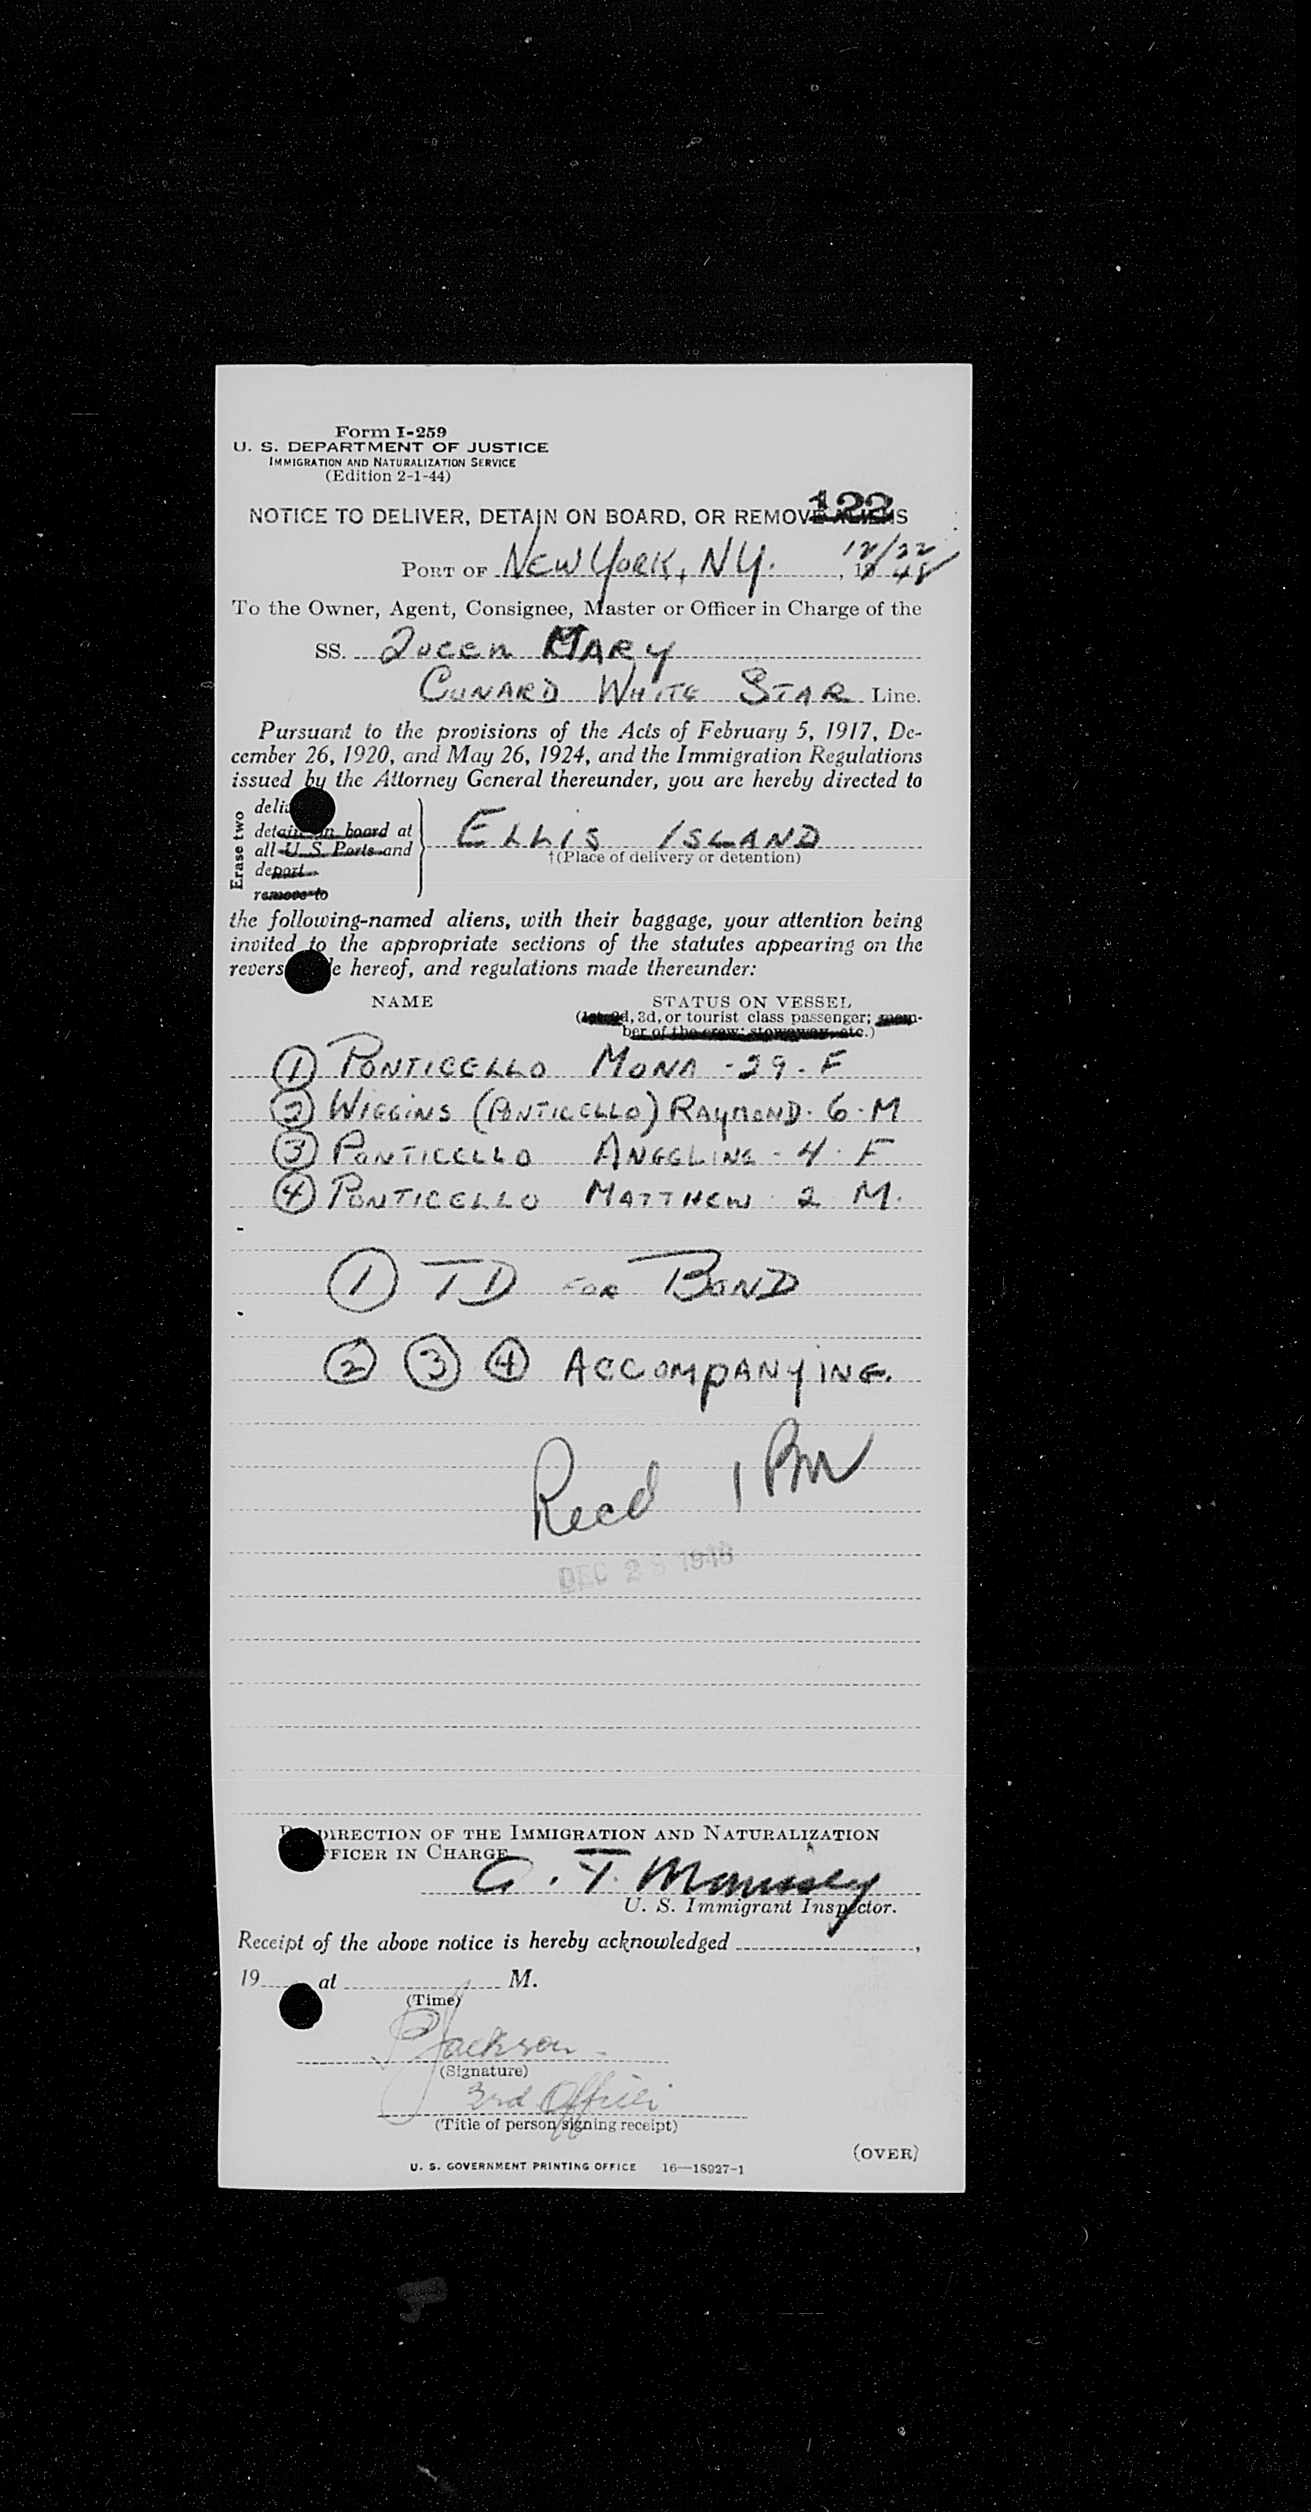 Form I-259
U. S. DEPARTMENT OF JUSTICE
IMMIGRATION AND NATURALIZATION SERVICE
(Edition 2-1-44)
122
NOTICE TO DELIVER, DETAIN ON BOARD, OR REMOVE ALIENS
12/22
PORT OF NEW YORK, NY. , 48
To the Owner, Agent, Consignee, Master or Officer in Charge of the
SS. QUEEN MARY
CUNARD WHITE STAR Line.
Pursuant to the provisions of the Acts of February 5, 1917, De-
cember 26, 1920, and May 26, 1924, and the Immigration Regulations
issued by the Attorney General thereunder, you are hereby directed to
Erase two
deli
detain on board at
all U. S. Ports and
deport
remove to
ELLIS ISLAND
†(Place of delivery or detention)
the following-named aliens, with their baggage, your attention being
invited to the appropriate sections of the statutes appearing on the
revers e hereof, and regulations made thereunder:
NAME STATUS ON VESSEL
(1st, 2d, 3d, or tourist class passenger; mem-
ber of the crew; stowaway, etc.)
① PONTICELLO MONA - 29 - F
② WIGGINS (PONTICELLO) RAYMOND - 6 - M
③ PONTICELLO ANGELINE - 4 - F
④ PONTICELLO MATTHEW 2 M.
① TD FOR BOND
② ③ ④ ACCOMPANYING.
Recd 1 PM
DEC 2 1948
DIRECTION OF THE IMMIGRATION AND NATURALIZATION
FFICER IN CHARGE
U. S. Immigrant Inspector.
Receipt of the above notice is hereby acknowledged ,
19 at M.
(Time)
Jackson
(Signature)
3rd Officer
(Title of person signing receipt)
(OVER)
U. S. GOVERNMENT PRINTING OFFICE 16—18927-1